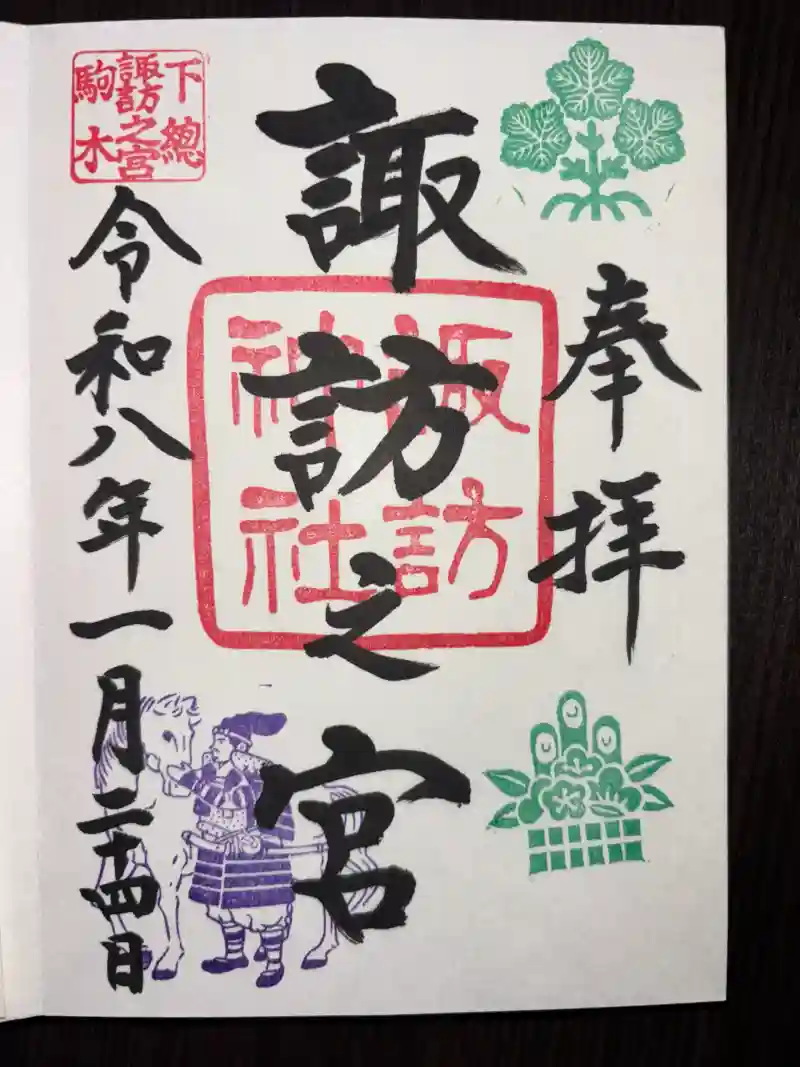 奉拝
諏訪之宮
諏訪
神社
下總
諏訪之宮
駒木
令和八年一月二十四日